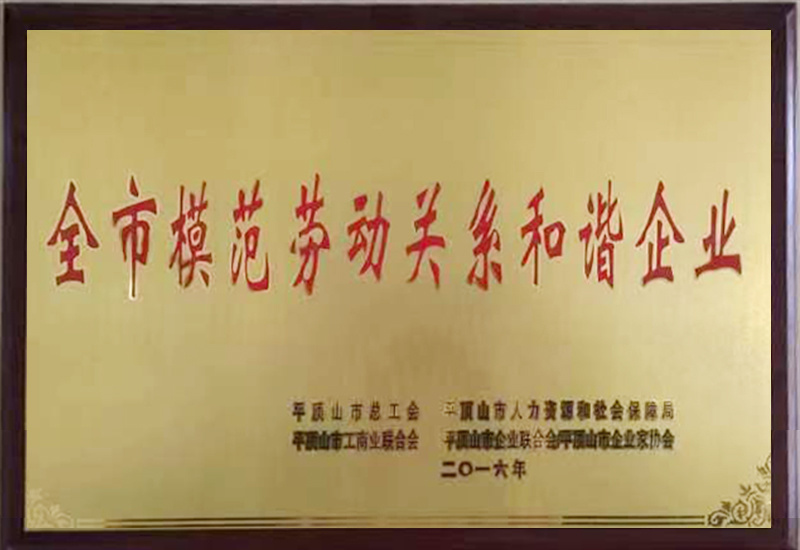 全市模范劳动关系和谐企业
平顶山市总工会 平顶山市人力资源和社会保障局
平顶山市工商业联合会 平顶山市企业联合会/平顶山市企业家协会
二〇一六年